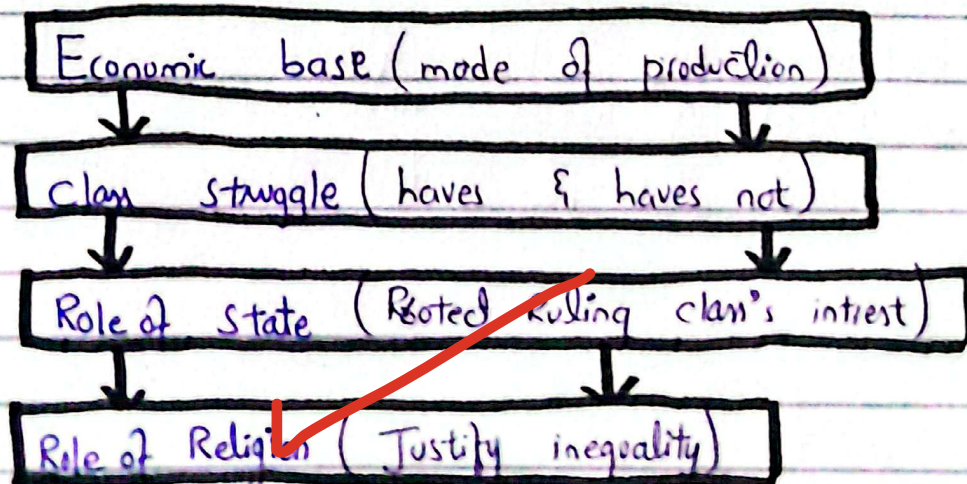 Economic base (mode of production)
Class struggle (haves & haves not)
Role of state (Protect Ruling class's intrest)
Role of Religion (Justify inequality)